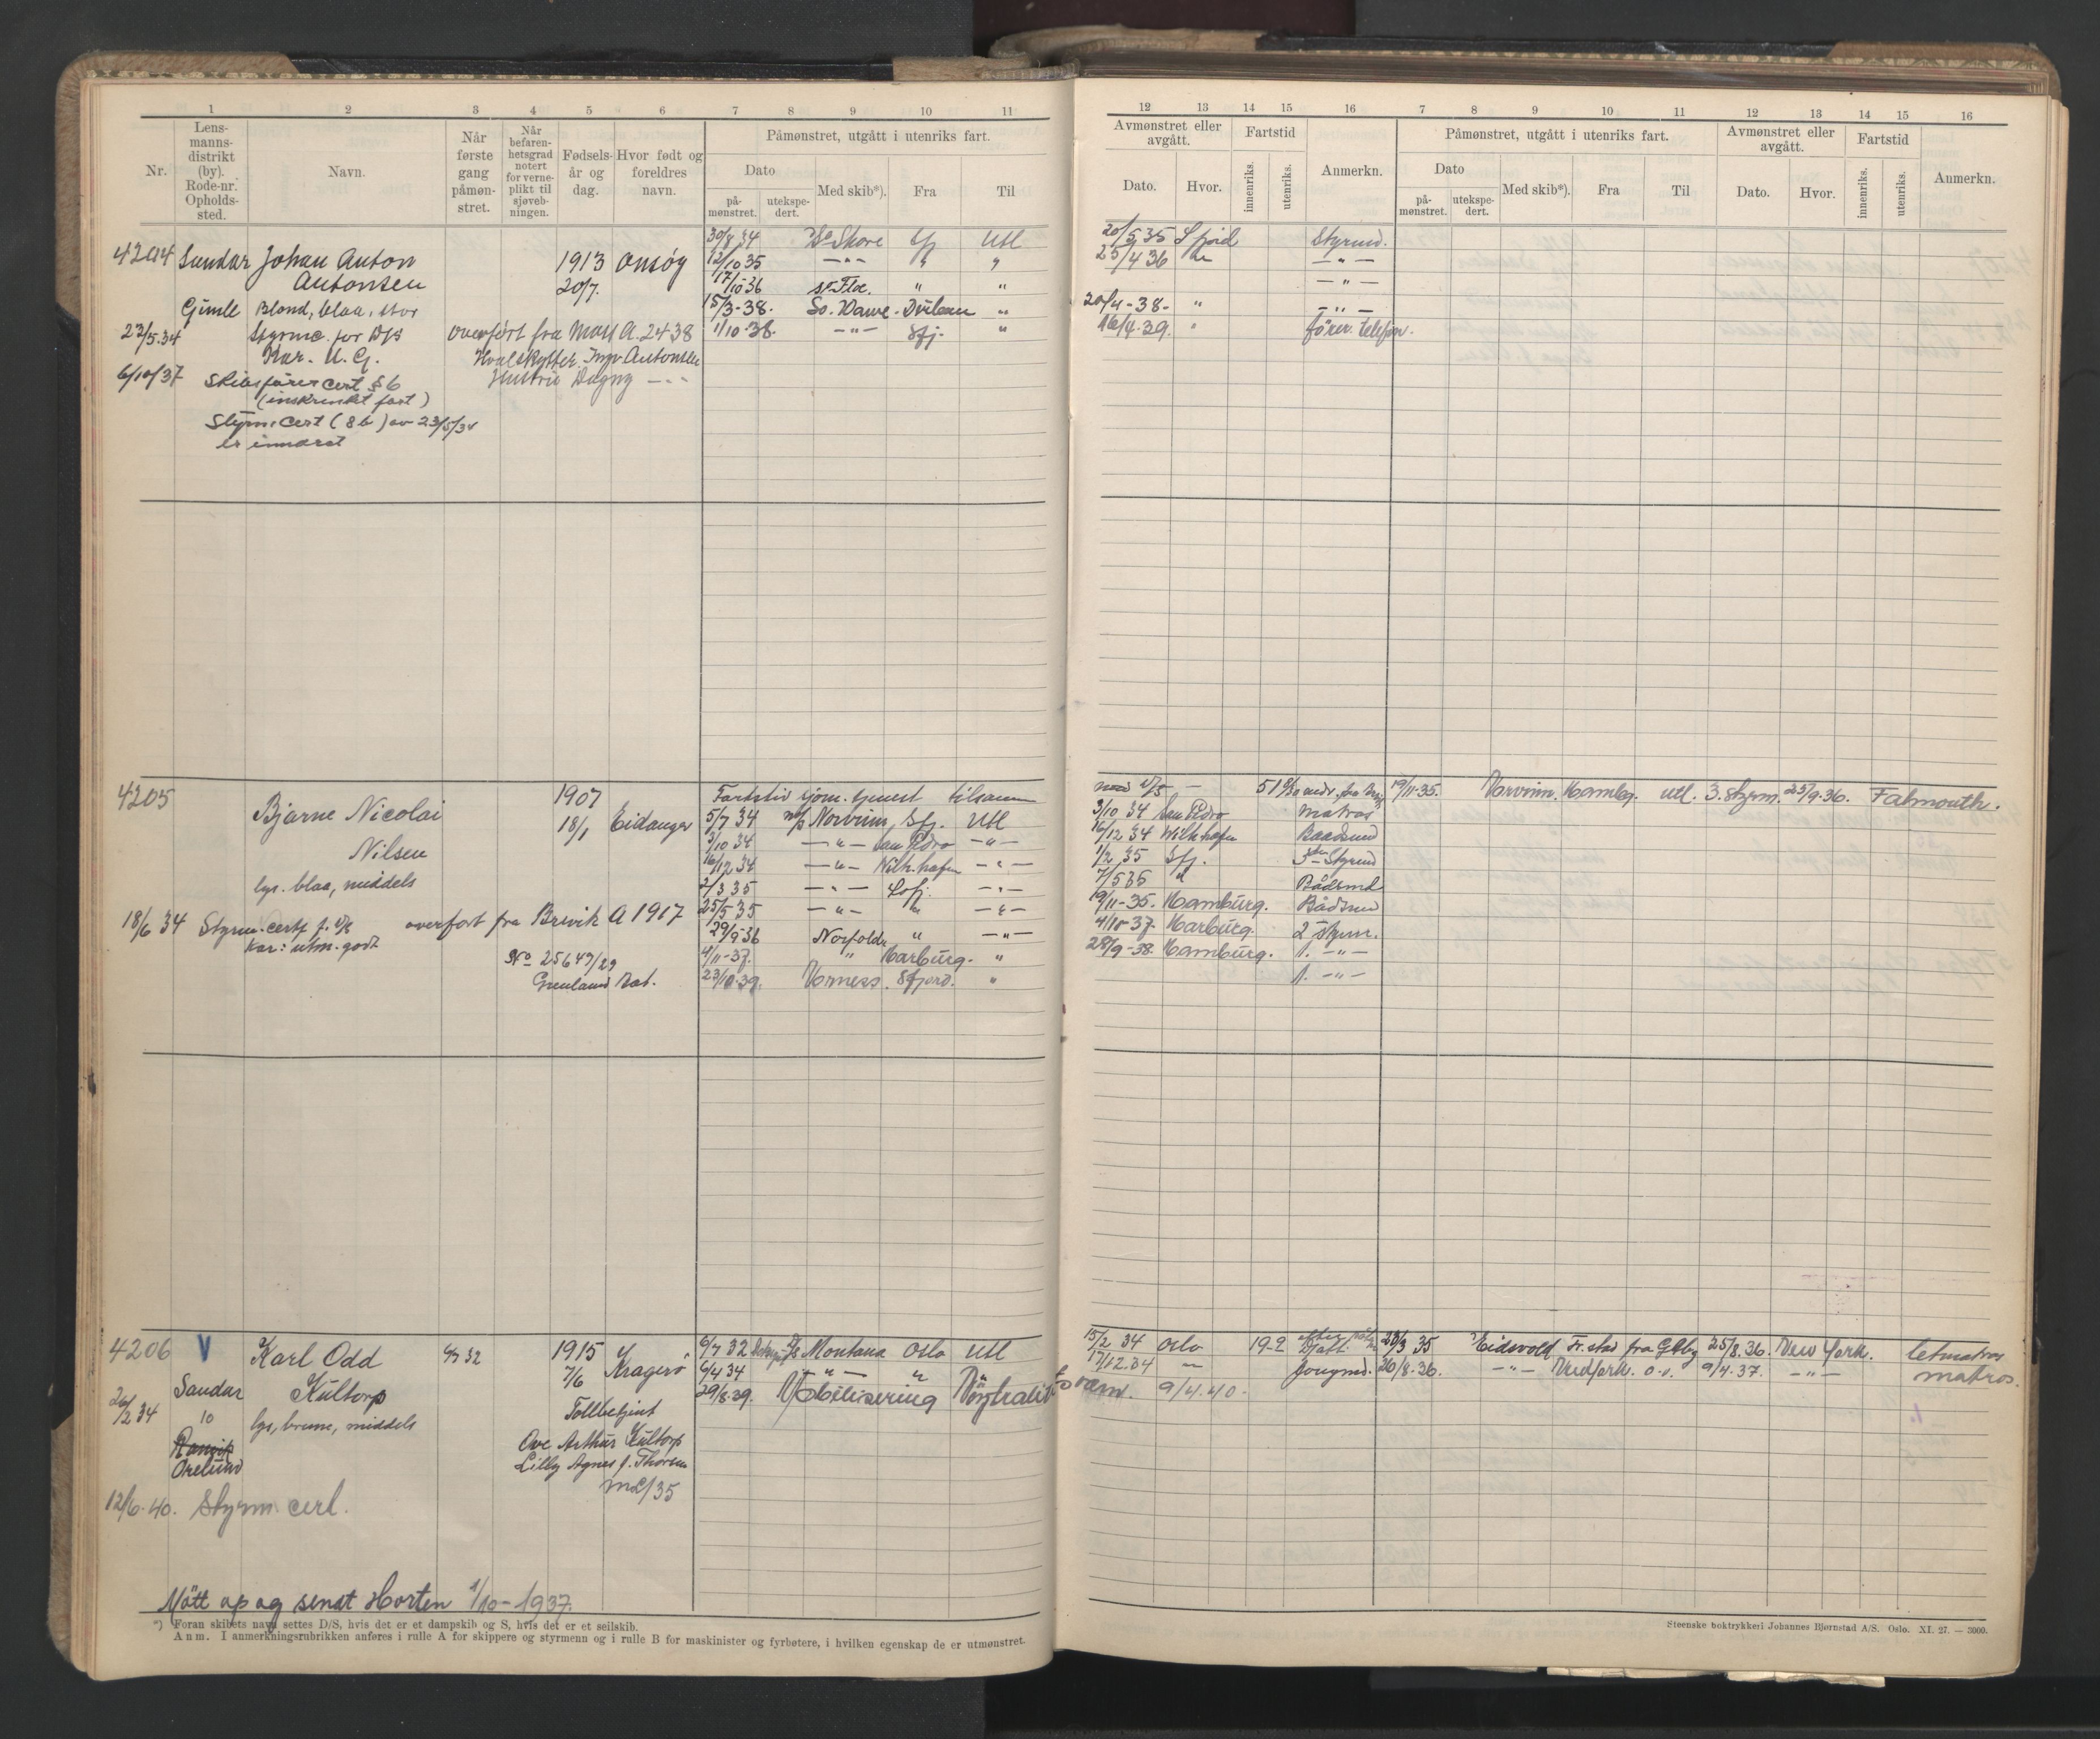 1 2 3 4 5 6 7 8 9 10 11
Nr.
Lens-
manns-
distrikt
(by).
Rode-nr.
Opholds-
sted.
Navn.
Når
første
gang
påmøn-
stret.
Når
befaren-
hetsgrad
notert
for verne-
plikt til
sjøveb-
ningen.
Fødsels-
år og
dag.
Hvor født og
foreldres
navn.
Påmønstret, utgått i utenriks fart.
Dato
på-
mønstret.
utekspe-
dert.
Med skib*).
Fra
Til
4204 Sundar Johan Anton 1913 Onsøy
Antonsen 20/7.
Gimle Blond, blaa, stor
23/5.34 Styrmc. for D/S overført fra Mass A. 2438
Kar. M. G. Hvalskytter Ing. Antonsen
6/10/37 Skibsfører cert § 6 Hustru Dagny - " -
(inskrenket fart)
Styrm. Cert (§ 6) av 23/5/34
er inndrat
30/8 34 Skore Sfj Utl
12/10 35 - " - " "
17/10-36 Flo. " "
15/3-38. So. Wawe. Durban "
1/10-38. - " - Sfj. "
4205 Bjarne Nicolai 1907
Nilsen 18/1 Eidanger
lys. blaa, middels
18/6 34 Styrm. cert f. overført fra Brevik A 1917
Kar: utm. godt
No 25649/29
Grenland Rat.
Fartstid sjøm. tjenest tilsamm
5/7 34 Norvinn Sfj. Utl
3/10 34 - " - San Pedro - " -
16/12 34 - " - Wilh.hafen - " -
2/3 35 - " - Sofj. - " -
25/5 35 - " - " - " -
29/9-36 Norfold " - " -
4/11-37. " Harburg. "
23/10.39. Vorness. Sfjord. "
4206 V Karl Odd 4/7 32 1915
Sandar Kultorp 7/6 Kragerø
26/2 34 10 lys, brune, middels Tollbetjent
Ranvik Ove Arthur Kultorp
Orelund Lilly Agnes f. Thorsen
12/6-40. Styrm. cert.
6/7 32 Montana Oslo Utl
6/4 34 - " - " "
29/8.39. Mobilisering Nøytralitetsvern. 9/4.40.
Møtt op og sendt Horten 1/10-1937.
*) Foran skibets navn settes D/S, hvis det er et dampskib og S, hvis det er et seilskib.
Anm. I anmerkningsrubrikken anføres i rulle A for skippere og styrmenn og i rulle B for maskinister og fyrbøtere, i hvilken egenskap de er utmønstret.
12 13 14 15 16 7 8 9 10 11 12 13 14 15 16
Avmønstret eller
avgått.
Dato.
Hvor.
Fartstid
innenriks.
utenriks.
Anmerkn.
Påmønstret, utgått i utenriks fart.
Dato
på-
mønstret.
utekspe-
dert.
Med skib*).
Fra
Til
Avmønstret eller
avgått.
Dato.
Hvor.
Fartstid
innenriks.
utenriks.
Anmerkn.
20/5 35 Sfjord Styrmd.
25/4 36 " - " -
- " -
20/4-38- " - " -
16/4.39. " fører. telefon.
19/11-35. Norvinn. Hambg. utl. 3. styrm. 25/9-36. Falmouth.
3/10 34 San Pedro Matros
16/12 34 Wilh.hafen Baadsmd
1/2 35 Sfj. 3 Styrmd
7/5 35 Bådsmd
19/11-35. Hamburg. Bådsmd
4/10-37. Harburg. 2 styrm.
28/9-38. Hamburg. 1. - " -
1. - " -
15/2 34 Oslo 19-2 23/3 35 Eidsvold Fr.stad fra Gtbg 25/8.36. New York. letmatros
17/12.34 " Jungmd. 26/8-36. - " - New York. o.v. 9/4-37. - " - matros.
1.
Steenske boktrykkeri Johannes Bjørnstad A/S. Oslo. XI. 27. — 3000.